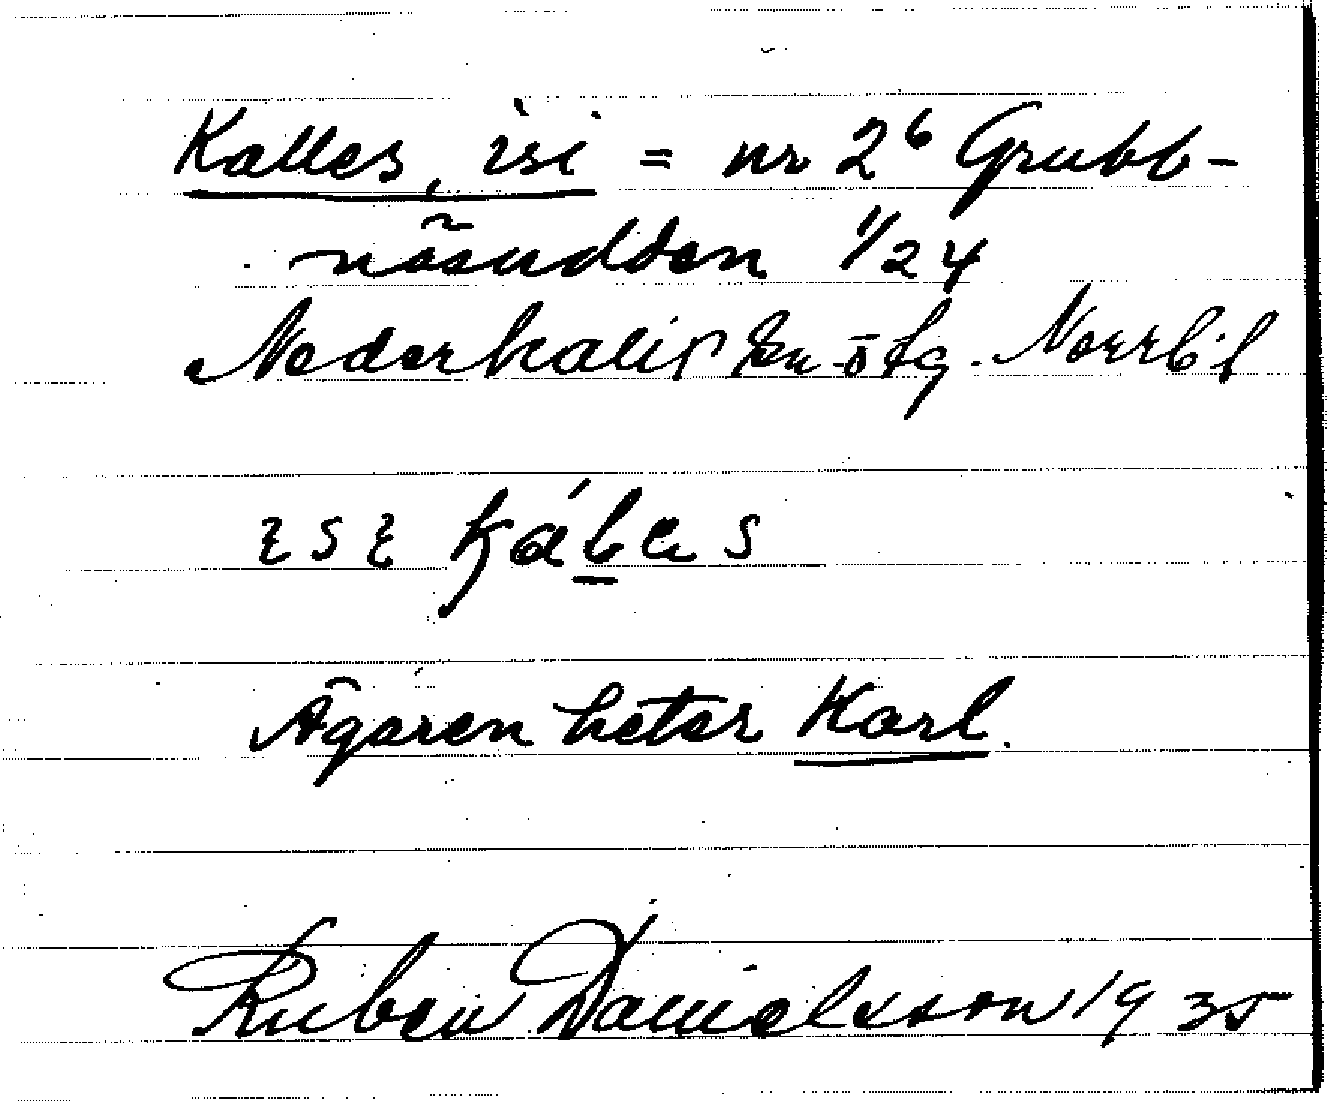 Kalles, isi = nr 2⁶ Grubb-
näsudden 1/24
Nederkalix sn o tg. Norrb. l
kálas
Ägaren heter Karl.
Ruben Danielsson 1935